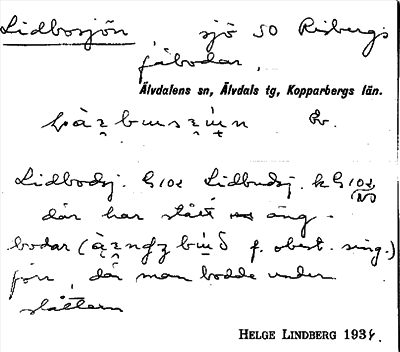 Lidbosjön, sjö SO Risbergs
fäbodar,
Älvdalens sn, Älvdals tg, Kopparbergs län.
Lidbodsj. G 102 Lidbudsj. k G 102 NO
där har stått äng-
bodar ( f. obest. sing.)
förr, där man bodde under
slåttern
HELGE LINDBERG 1934.